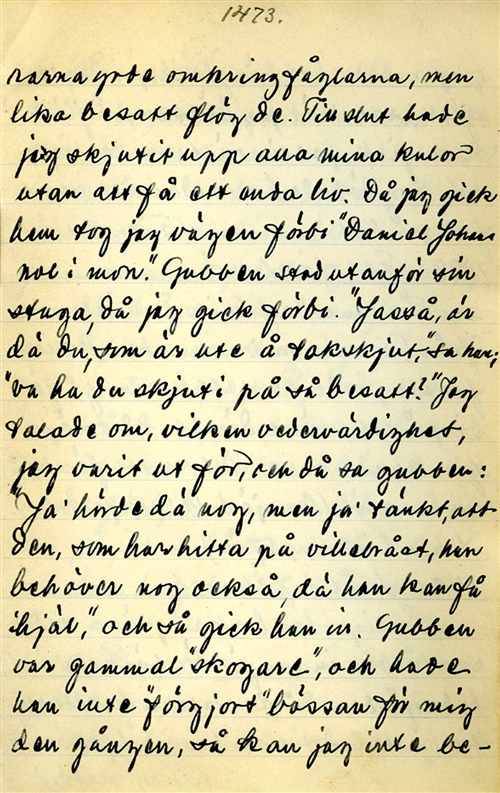 1473.
rarna yrde omkring fåglarna, men
lika besatt flög de. Till slut hade
jag skjutit upp alla mina kulor
utan att få ett enda liv. Då jag gick
hem tog jag vägen förbi "Daniel Johans
nol i mon." Gubben stod utanför sin
stuga, då jag gick förbi. "Jasså, är
dä du, som är ute å takskjut," sa han;
"va ha du skjuti på så besatt?" Jag
talade om, vilken vedervärdighet,
jag varit ut för, och då sa gubben:
"Ja' hörde dä nog, men ja' tänkt, att
den, som har hitta på villebråt, han
behöver nog också, dä han kan få
ihjäl," och så gick han in. Gubben
var gammal "skogare", och hade
han inte "förgjort" bössan för mig
den gången, så kan jag inte be-